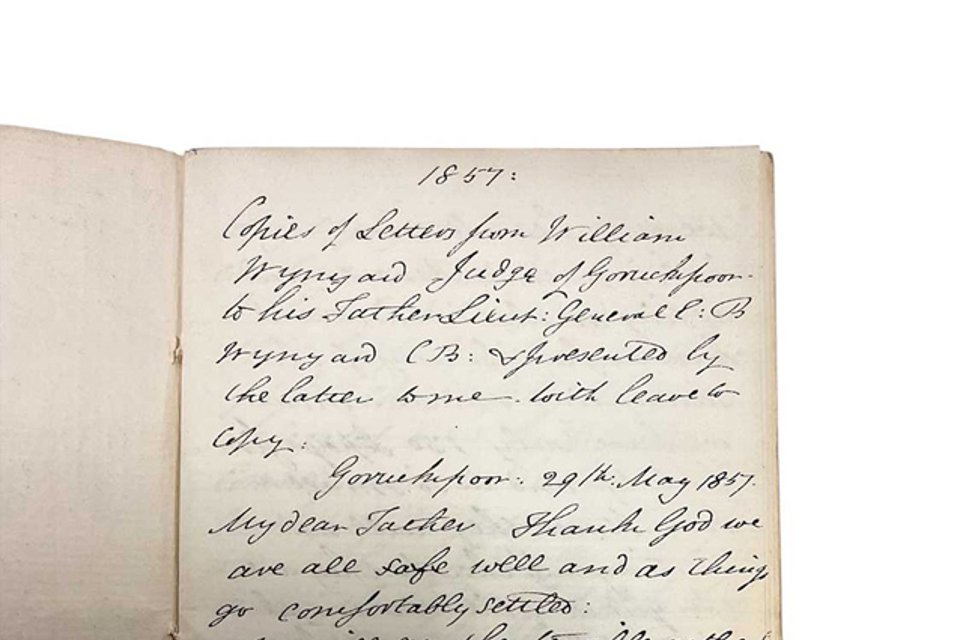 1857:
Copies of Letters from William
Wynyard Judge of Goruckpoor
to his Father Lieut: General E: B
Wynyard CB: & presented by
the latter to me. with leave to
Copy:
Goruckpoor: 29th: May 1857.
My dear Father Thank God we
are all safe well and as things
go comfortably settled: